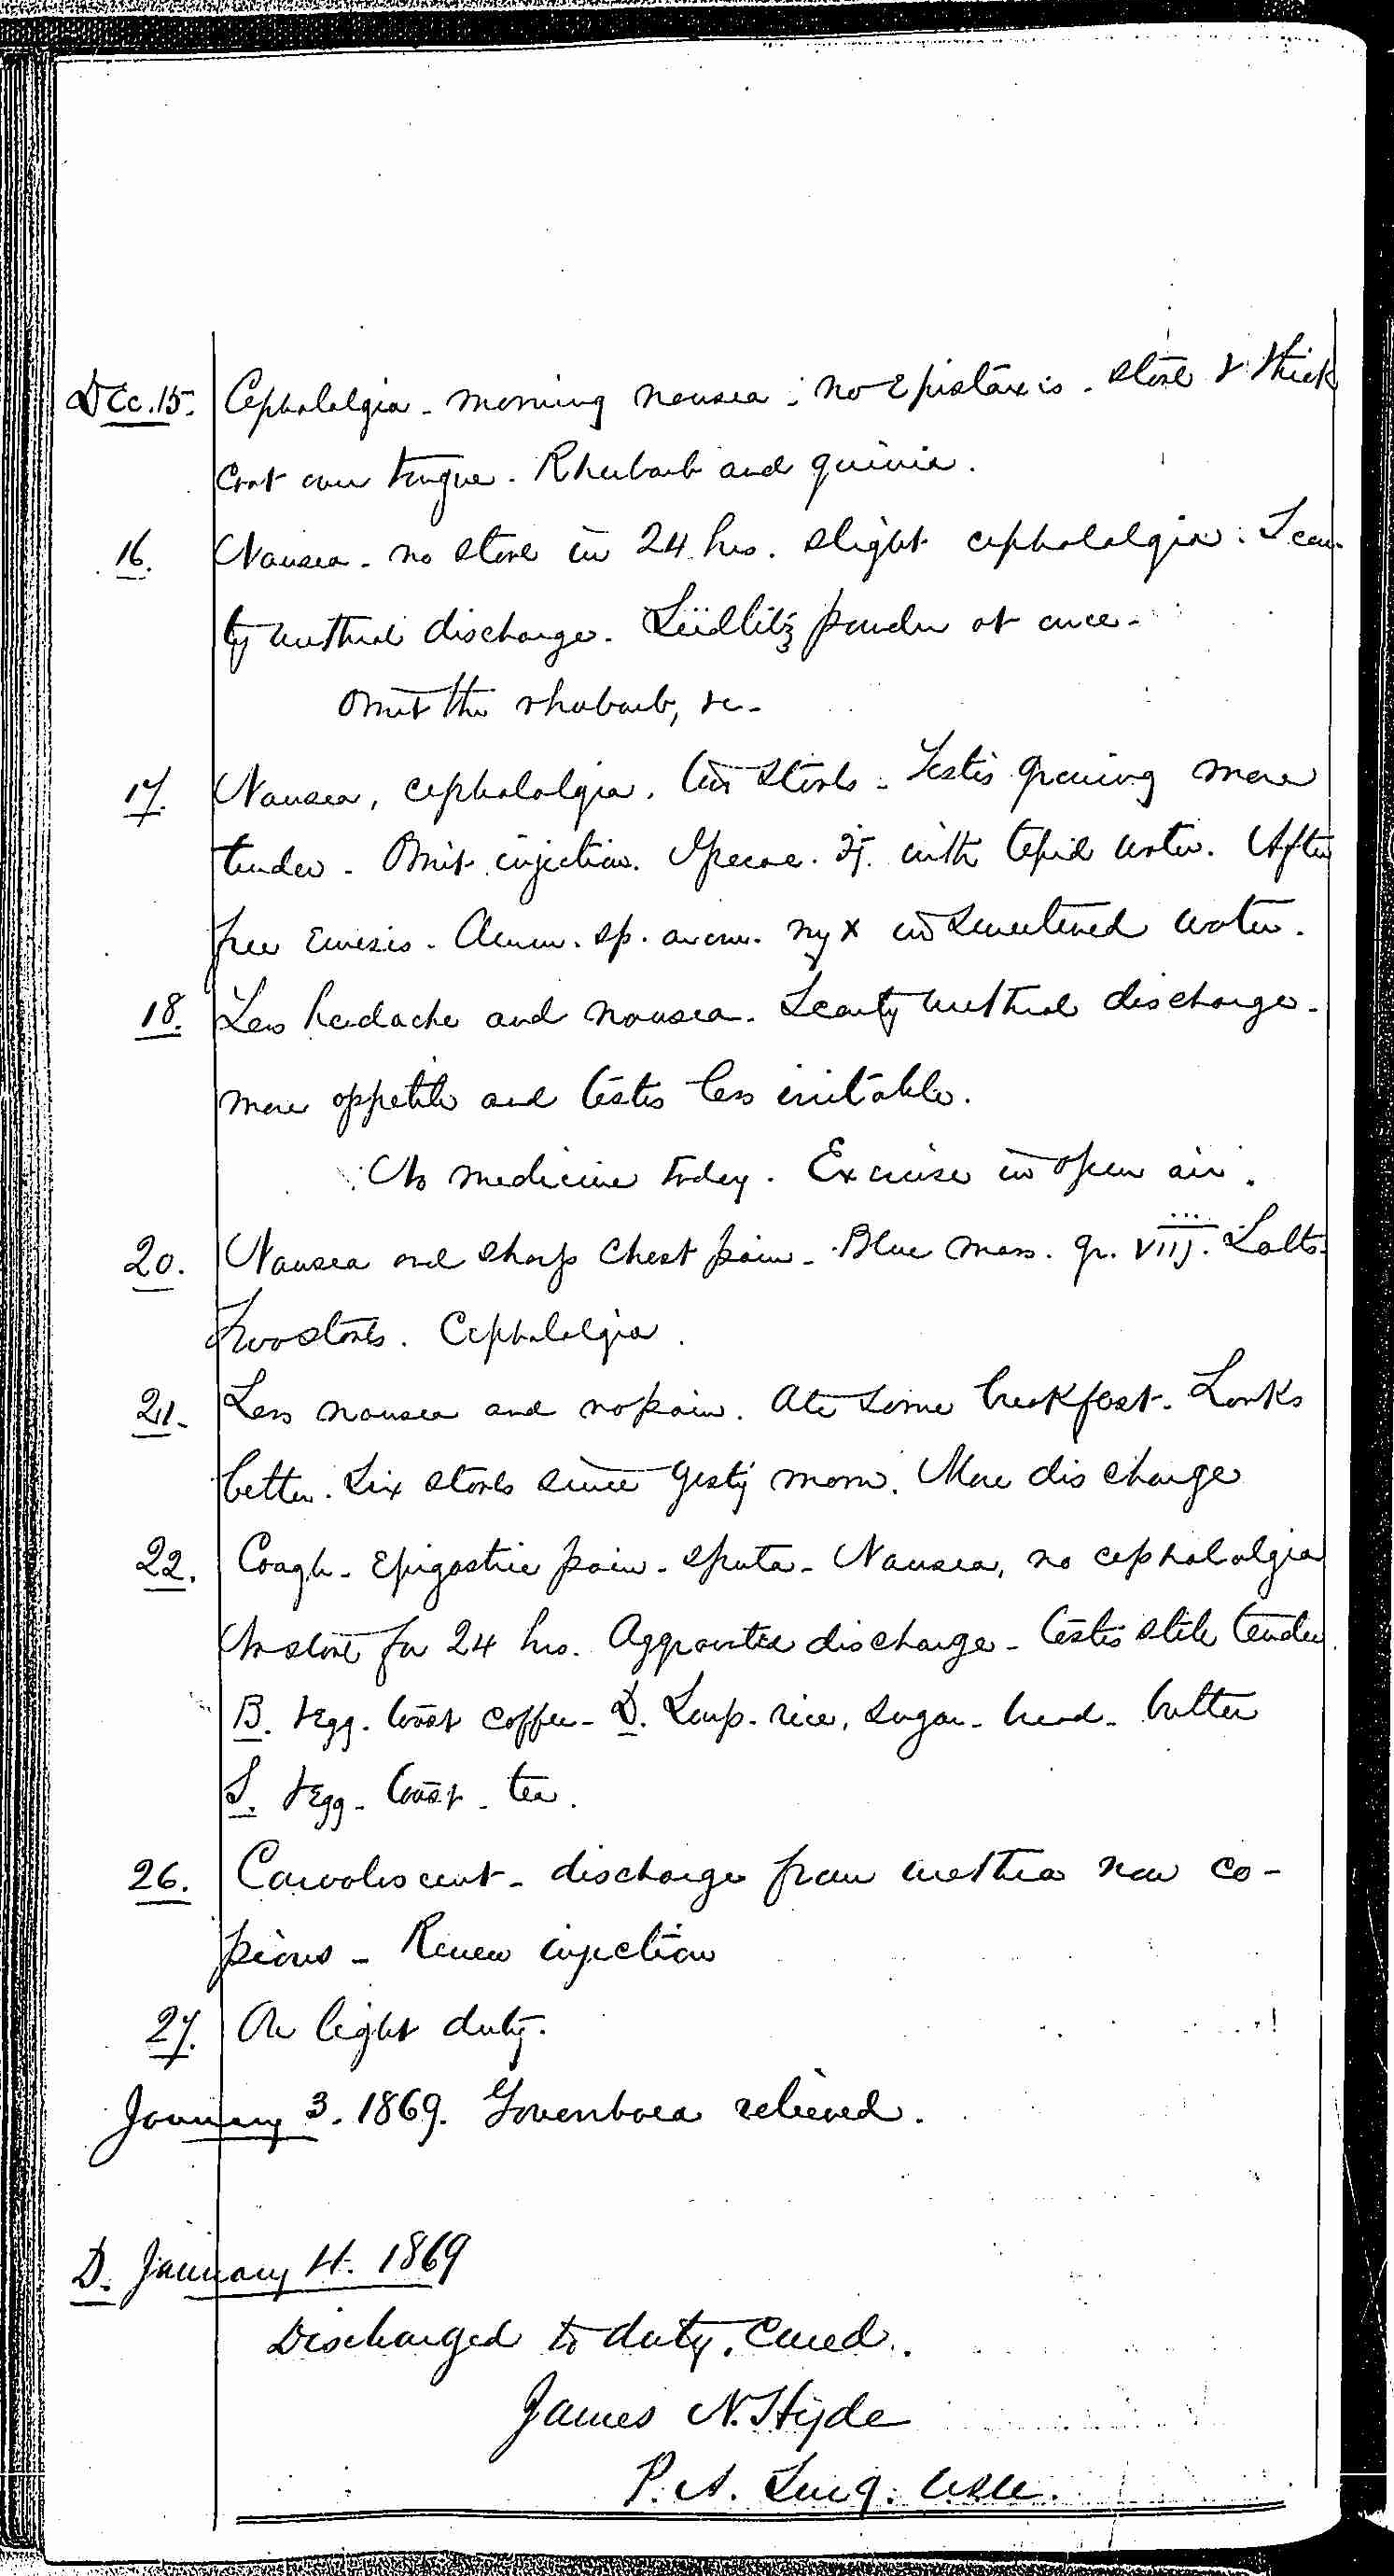 Dec. 15. Cephalalgia - morning nausea; no Epistaxis - stool & thick
Coat over tongue. Rhubarb and quinia.
16. Nausea - no stool in 24 hrs. slight cephalalgia. Scan-
ty urethral discharge. Seidlitz powder at once -
Omit the rhubarb, &c -
17. Nausea, cephalalgia. two stools - Testis growing more
tender - Omit injection. Ipecac. ʒj. with tepid water. After
free Emesis - Amm. sp. arom. ♏ x in sweetened water.
18. Less headache and nausea. Scanty urethral discharge -
more appetite and testis less irritable.
No medicine today. Exercise in open air.
20. Nausea and sharp chest pain - Blue mass. gr. viij. Salts.
Two stools. Cephalalgia.
21 - Less nausea and no pain. Ate some breakfast. Looks
better. Six stools since yesty morn. More discharge
22. Cough - Epigastric pain - sputa - Nausea, no cephalalgia
No stool for 24 hrs. discharge - testis still tender.
B. Egg - toast coffee - D. Soup - rice, sugar - bread - butter
S. Egg - toast - tea.
26. Convalescent - discharge from urethra now co-
pious - Renew injection
27. On light duty.
January 3. 1869. Gonorrhoea relieved.
D. January 4. 1869
Discharged to duty, Cured.
James N. Hyde
P. A. Surg. USN.